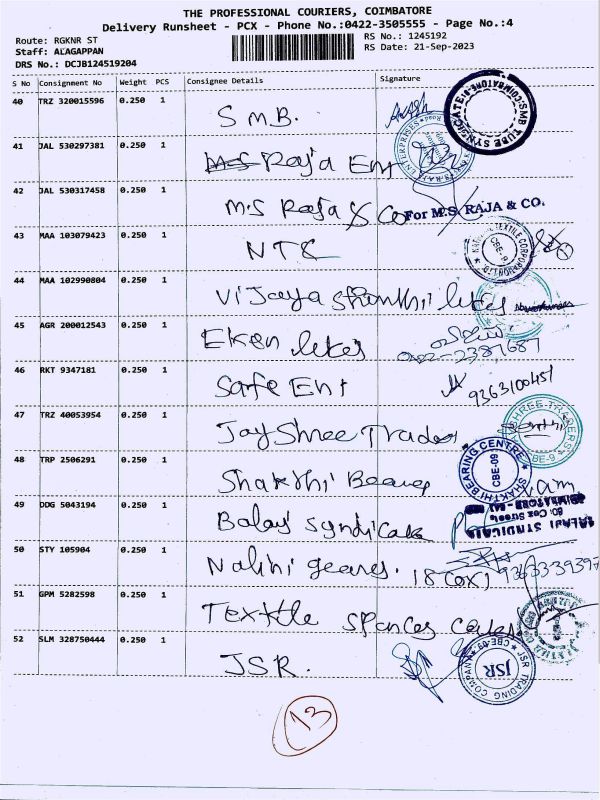 THE PROFESSIONAL COURIERS, COIMBATORE
Delivery Runsheet - PCX - Phone No.:0422-3505555 - Page No.:4
Route: RGKNR ST
Staff: ALAGAPPAN
DRS No.: DCJB124519204
RS No.: 1245192
RS Date: 21-Sep-2023
S No Consignment No Weight PCS Consignee Details Signature
40 TRZ 320015596 0.250 1 S M B.
SMB TUBE SYNDICATE COIMBATORE-9
41 JAL 530297381 0.250 1 Raja Ent
ENTERPRISES
42 JAL 530317458 0.250 1 M.S Raja & Co For M.S. RAJA & CO.
43 MAA 103079423 0.250 1 NTC
TEXTILE CORPORATION
CBE-9
44 MAA 102990804 0.250 1 Vijaya
45 AGR 200012543 0.250 1 Eken
0422-2387687
46 RKT 9347181 0.250 1 Safe Ent 9363100451
47 TRZ 40053954 0.250 1 Jay Shree Trader
SHREE TRADERS
CBE-9
48 TRP 2506291 0.250 1 Shakthi
SHAKTHI BEARING CENTRE
CBE-09
49 DDG 5043194 0.250 1 Balaji Syndicate
BALAJI SYNDICATE
50 STY 105904 0.250 1 Nalini gears.
51 GPM 5282598 0.250 1 Textile
52 SLM 328750444 0.250 1 JSR.
JSR TRADING COMPANY
CBE-09
JSR
13